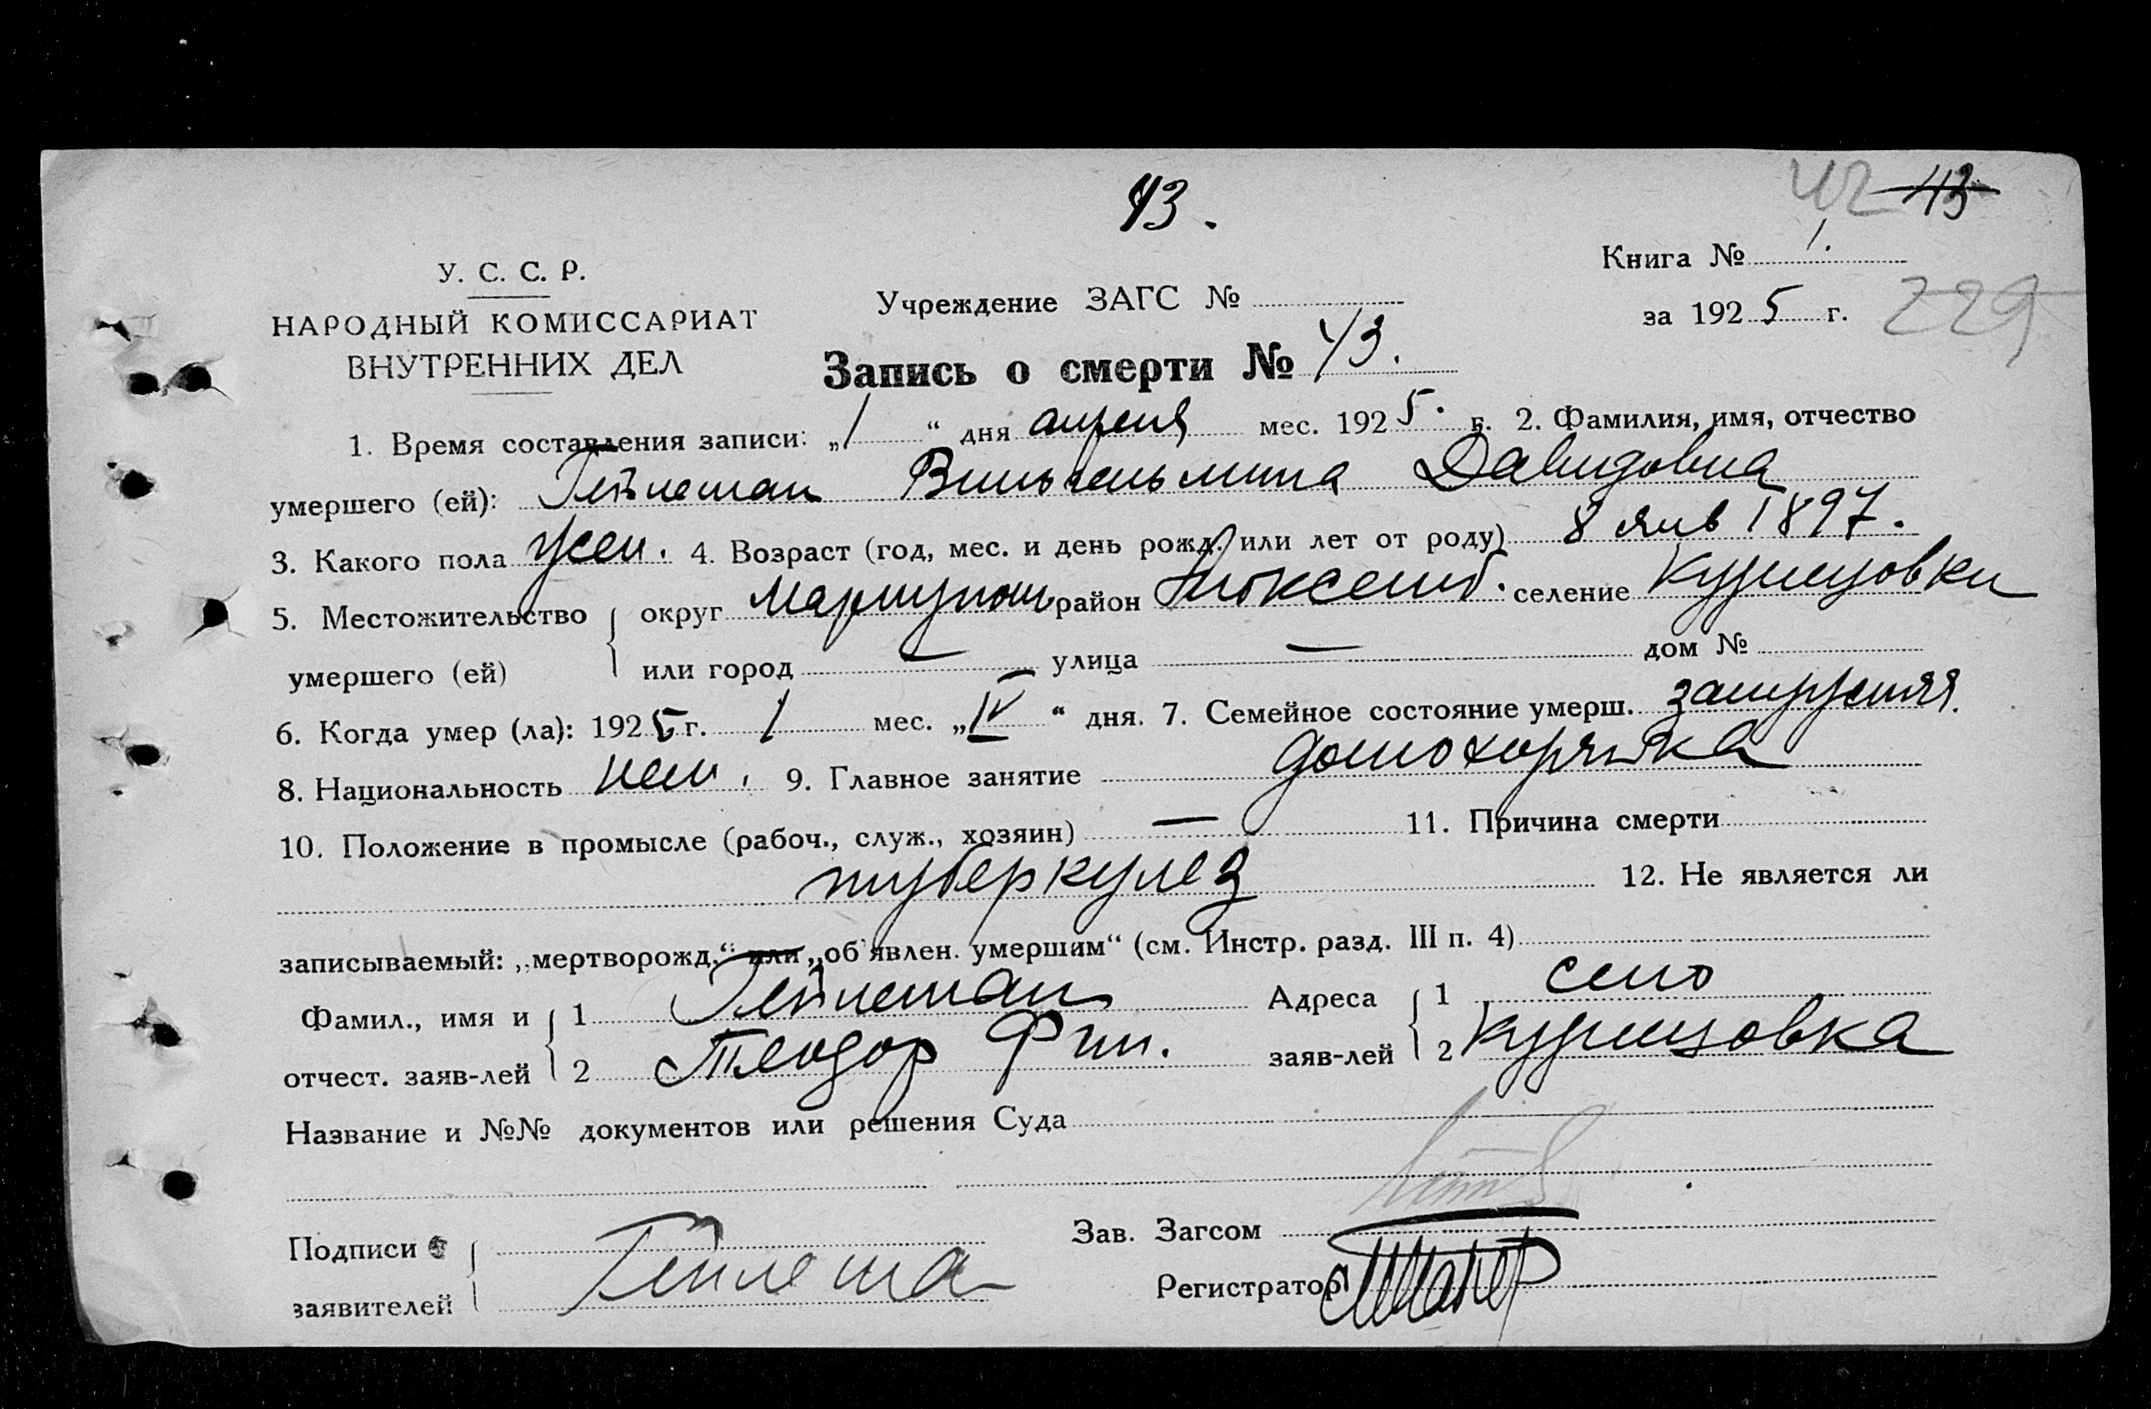 43.
42 43
У. С. С. Р.
НАРОДНЫЙ КОМИССАРИАТ
ВНУТРЕННИХ ДЕЛ
Учреждение ЗАГС №
Запись о смерти № 43.
Книга № 1.
за 1925 г.
229
1. Время составления записи: „1“ дня апреля мес. 1925. г. 2. Фамилия, имя, отчество
умершего (ей): Вильгельмина Давидовна
3. Какого пола жен. 4. Возраст (год, мес. и день рожд. или лет от роду) 8 янв 1897.
5. Местожительство округ Мариупол. район Люксемб. селение
умершего (ей) или город — улица — дом №
6. Когда умер (ла): 1925 г. 1 мес. „IV“ дня. 7. Семейное состояние умерш. замужняя.
8. Национальность нем. 9. Главное занятие домохозяйка
10. Положение в промысле (рабоч., служ., хозяин) — 11. Причина смерти
туберкулез 12. Не является ли
записываемый: „мертворожд.“ или „об'явлен. умершим“ (см. Инстр. разд. III п. 4)
Фамил., имя и 1 Адреса 1 село
отчест. заяв-лей 2 Теодор Фил. заяв-лей 2
Название и №№ документов или решения Суда
Подписи Зав. Загсом
заявителей Регистратор